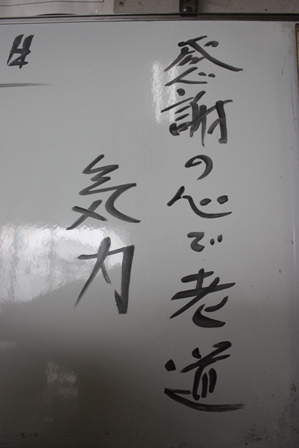 感謝の心で老道
気力